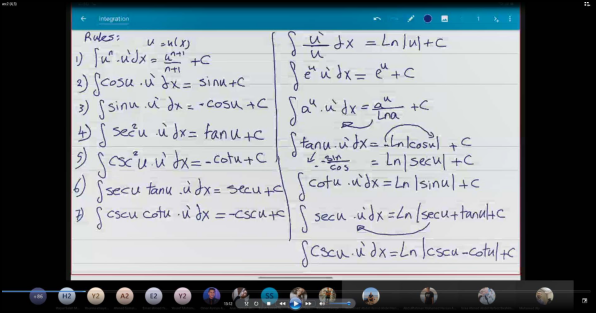 Integration
Rules: u = u(x)
1) ∫ uⁿ · u' dx = uⁿ⁺¹/n+1 + C
2) ∫ cosu · u' dx = sinu + C
3) ∫ sinu · u' dx = -cosu + C
4) ∫ sec²u · u' dx = tanu + C
5) ∫ csc²u · u' dx = -cotu + C
6) ∫ secu tanu · u' dx = secu + C
7) ∫ cscu cotu · u' dx = -cscu + C
∫ u'/u dx = Ln|u| + C
∫ eᵘ u' dx = eᵘ + C
∫ aᵘ · u' dx = aᵘ/Lna + C
∫ tanu · u' dx = -Ln|cosu| + C
- -sin/cos = Ln|secu| + C
∫ cotu · u' dx = Ln|sinu| + C
∫ secu · u' dx = Ln|secu + tanu| + C
∫ cscu · u' dx = Ln|cscu - cotu| + C
+86 H2 Y2 A2 E2 Y2 SS